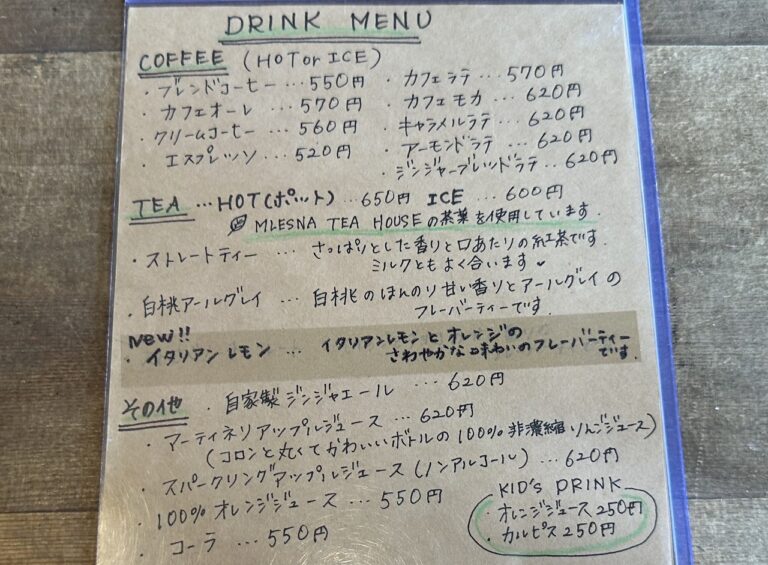 DRINK MENU
COFFEE (HOT or ICE)
・ブレンドコーヒー…550円
・カフェオーレ …570円
・クリームコーヒー …560円
・エスプレッソ …520円
・カフェラテ …570円
・カフェモカ …620円
・キャラメルラテ …620円
・アーモンドラテ …620円
・ジンジャーブレッドラテ…620円
TEA …HOT(ポット) …650円 ICE …600円
MLESNA TEA HOUSEの茶葉を使用しています.
・ストレートティー … さっぱりとした香りと口あたりの紅茶です.
ミルクともよく合います
・白桃アールグレイ … 白桃のほんのり甘い香りとアールグレイの
フレーバーティーです.
New!!
・イタリアンレモン … イタリアンレモンとオレンジの
さわやかな味わいのフレーバーティー
です.
その他
・自家製ジンジャエール …620円
・マーティネリアップルジュース …620円
(コロンと丸くてかわいいボトルの100%非濃縮りんごジュース)
・スパークリングアップルジュース(ノンアルコール) …620円
・100%オレンジジュース …550円
・コーラ …550円
KID's DRINK
・オレンジジュース250円
・カルピス250円